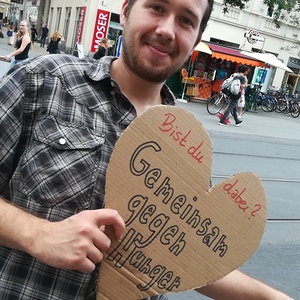 MOSER
Bist du
dabei?
Gemeinsam
gegen
Hunger